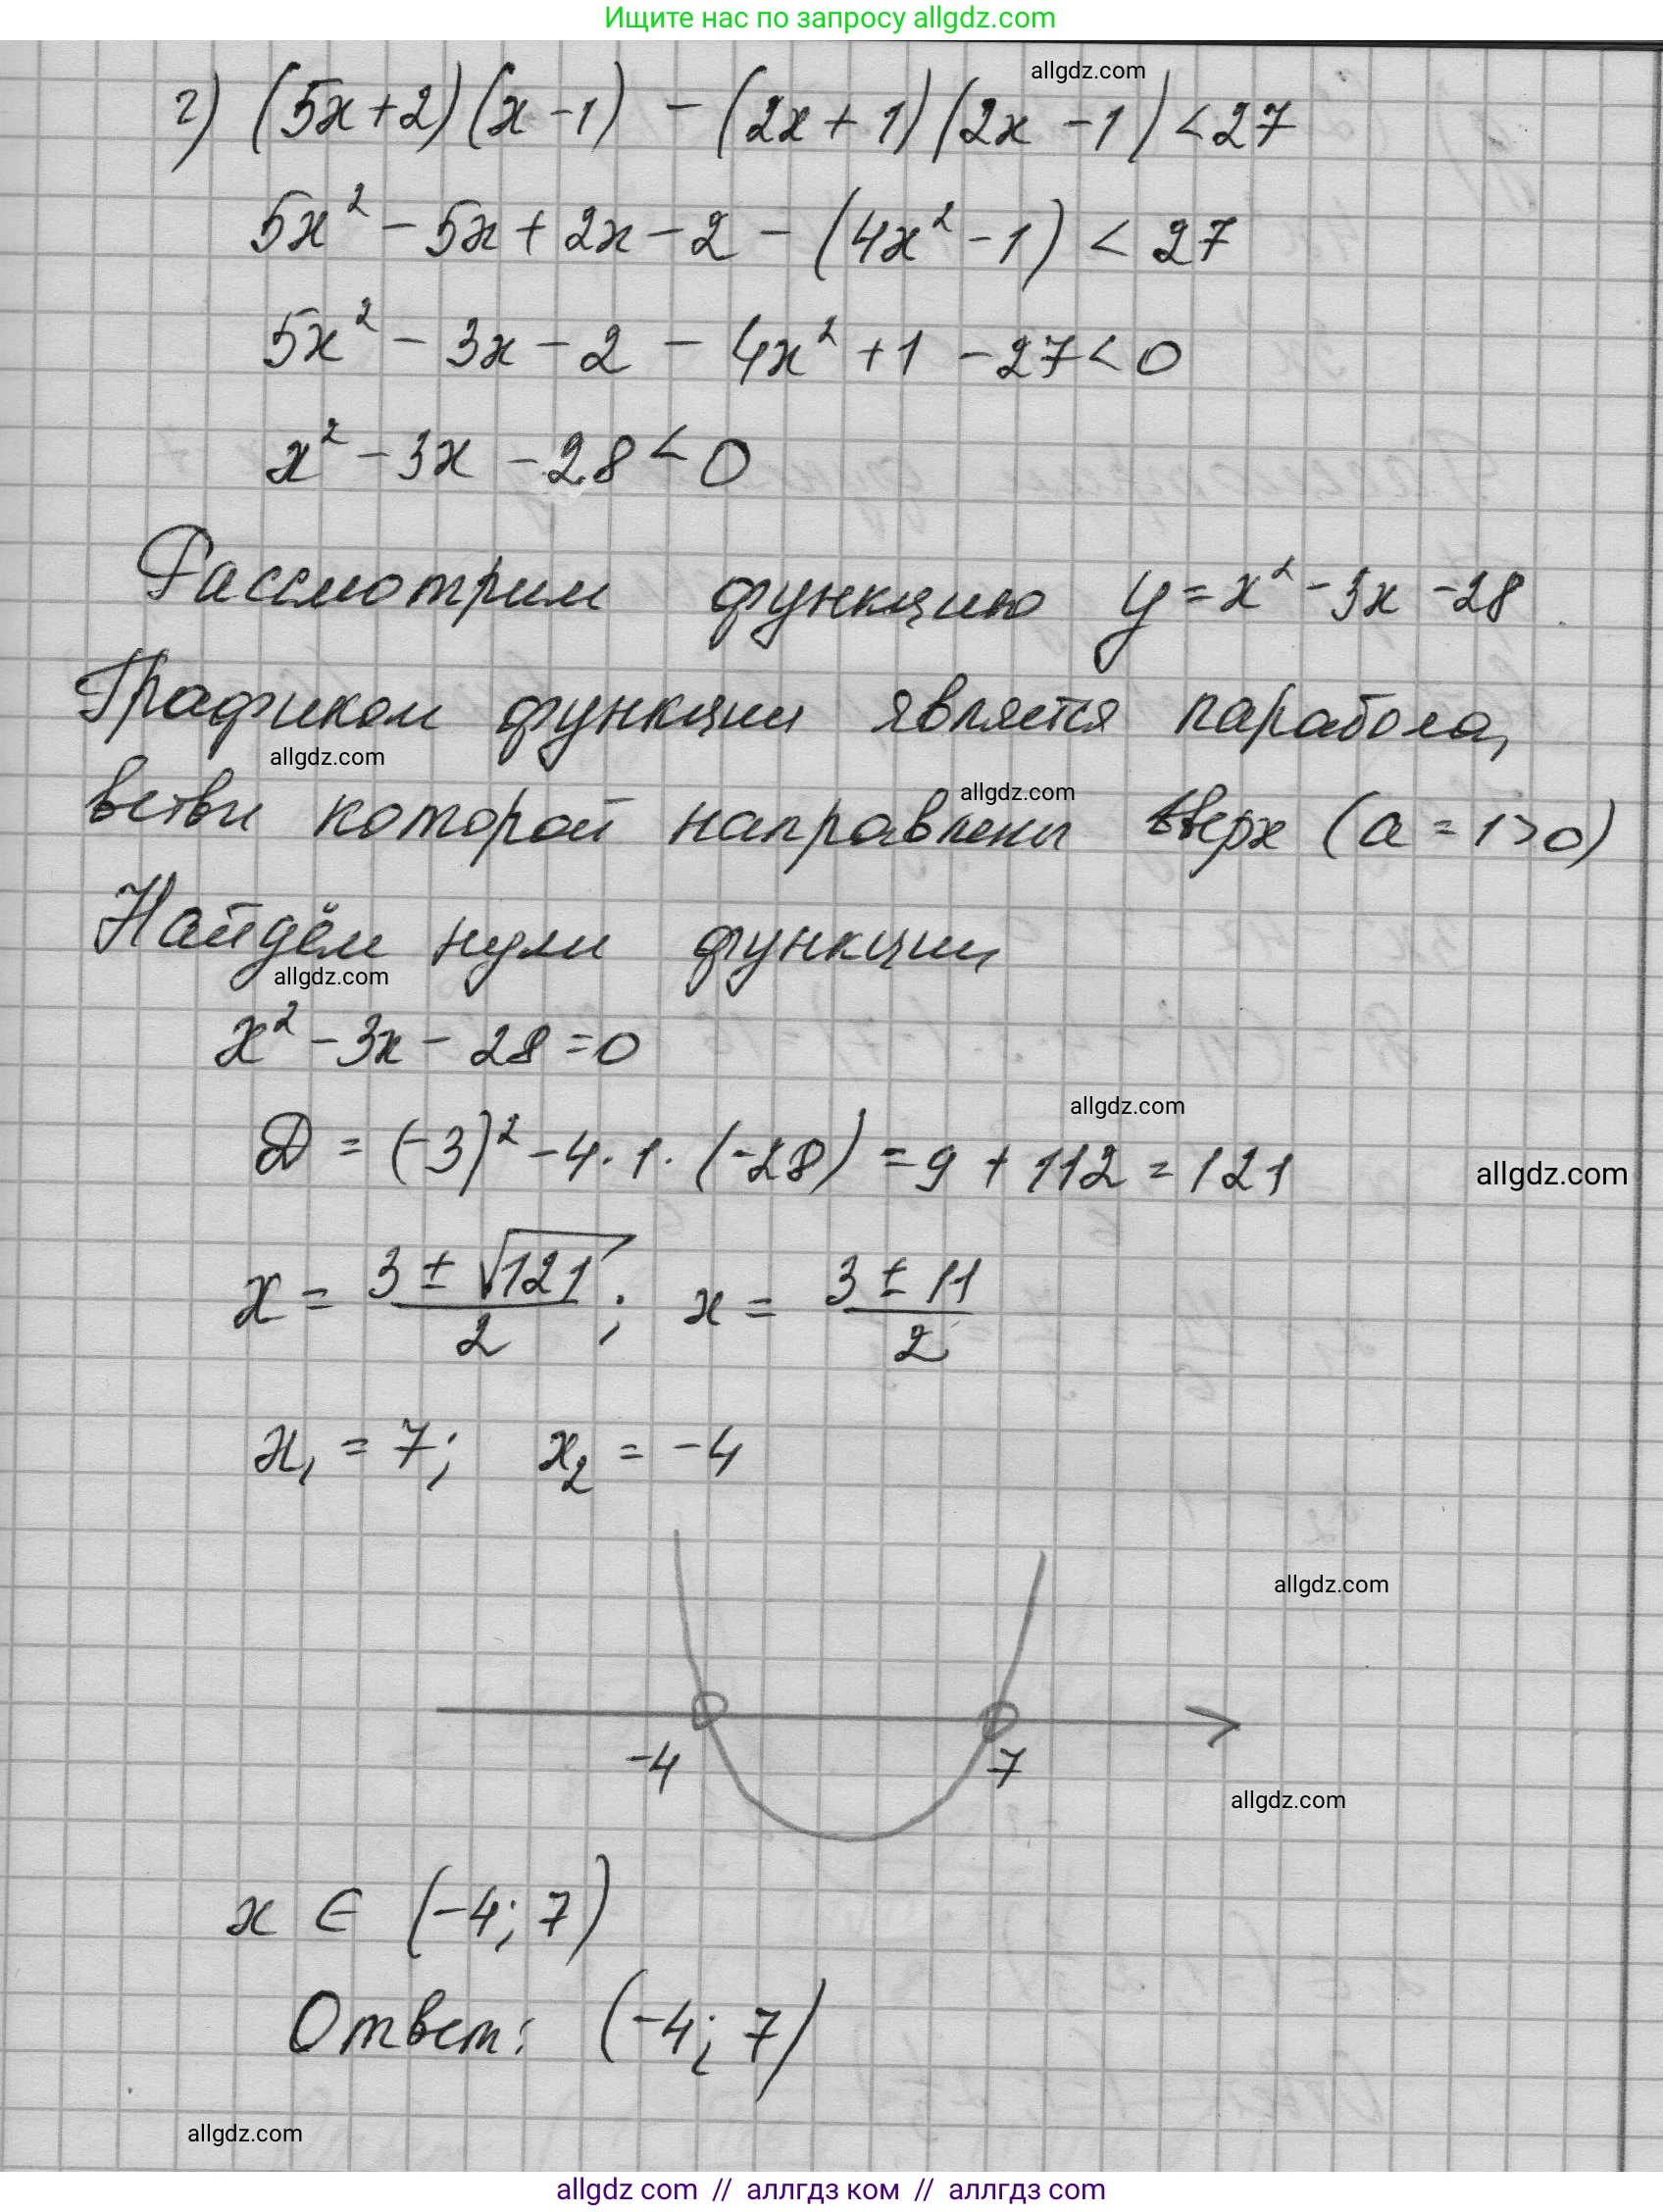 Ищите нас по запросу allgdz.com
allgdz.com
г) (5x+2)(x-1) - (2x+1)(2x-1) < 27
5x² - 5x + 2x - 2 - (4x² - 1) < 27
5x² - 3x - 2 - 4x² + 1 - 27 < 0
x² - 3x - 28 < 0
Рассмотрим функцию y = x² - 3x - 28
Графиком функции является парабола,
allgdz.com
ветви которой направлены вверх (a = 1 > 0)
allgdz.com
Найдём нули функции
allgdz.com
x² - 3x - 28 = 0
allgdz.com
D = (-3)² - 4 · 1 · (-28) = 9 + 112 = 121
allgdz.com
x = (3 ± √121)/2 ; x = (3 ± 11)/2
x₁ = 7; x₂ = -4
allgdz.com
-4 7
allgdz.com
x ∈ (-4; 7)
Ответ: (-4; 7)
allgdz.com
allgdz com // аллгдз ком // аллгдз com